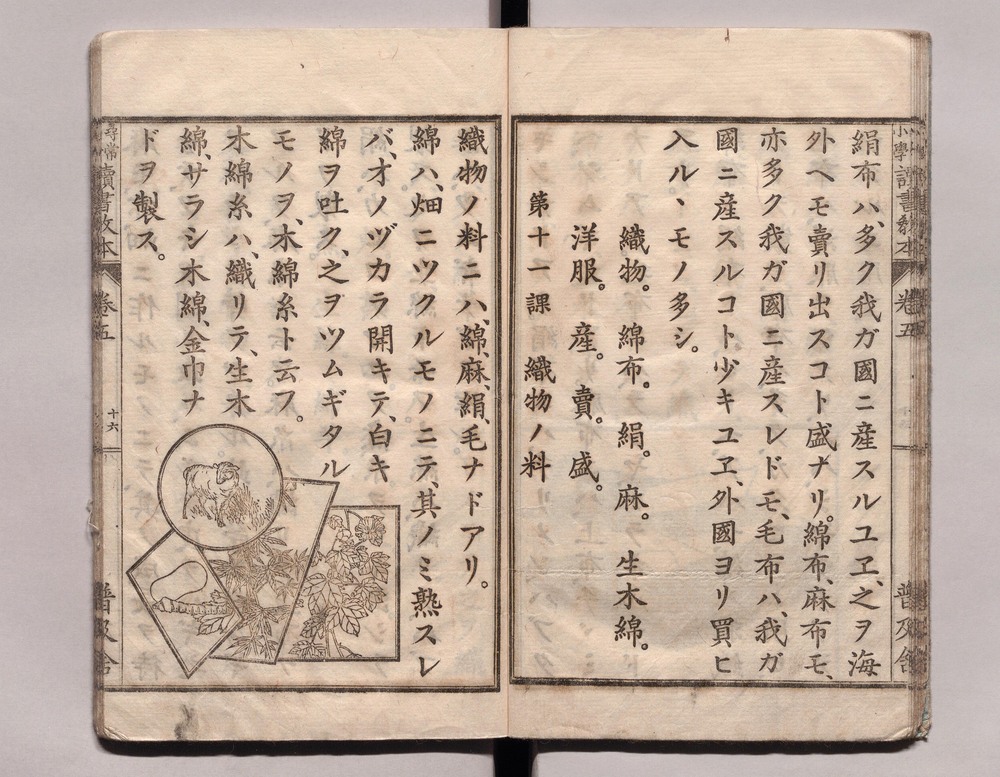 小學讀書教本
卷五
普及舍
絹布ハ、多ク我ガ國ニ産スルユヱ、之ヲ海
外ヘモ賣リ出スコト盛ナリ。綿布、麻布モ、
亦多ク我ガ國ニ産スレドモ、毛布ハ、我ガ
國ニ産スルコト少キユヱ、外國ヨリ買ヒ
入ル、モノ多シ。
織物。綿布。絹。麻。生木綿。
洋服。産。賣。盛。
第十一課 織物ノ料
織物ノ料ニハ、綿、麻、絹、毛ナドアリ。
綿ハ、畑ニツクルモノニテ、其ノミ熟スレ
バ、オノヅカラ開キテ、白キ
綿ヲ吐ク、之ヲツムギタル
モノヲ、木綿糸ト云フ。
木綿糸ハ、織リテ、生木
綿、サラシ木綿、金巾ナ
ドヲ製ス。
尋常讀書教本
卷五
十六
普及舍